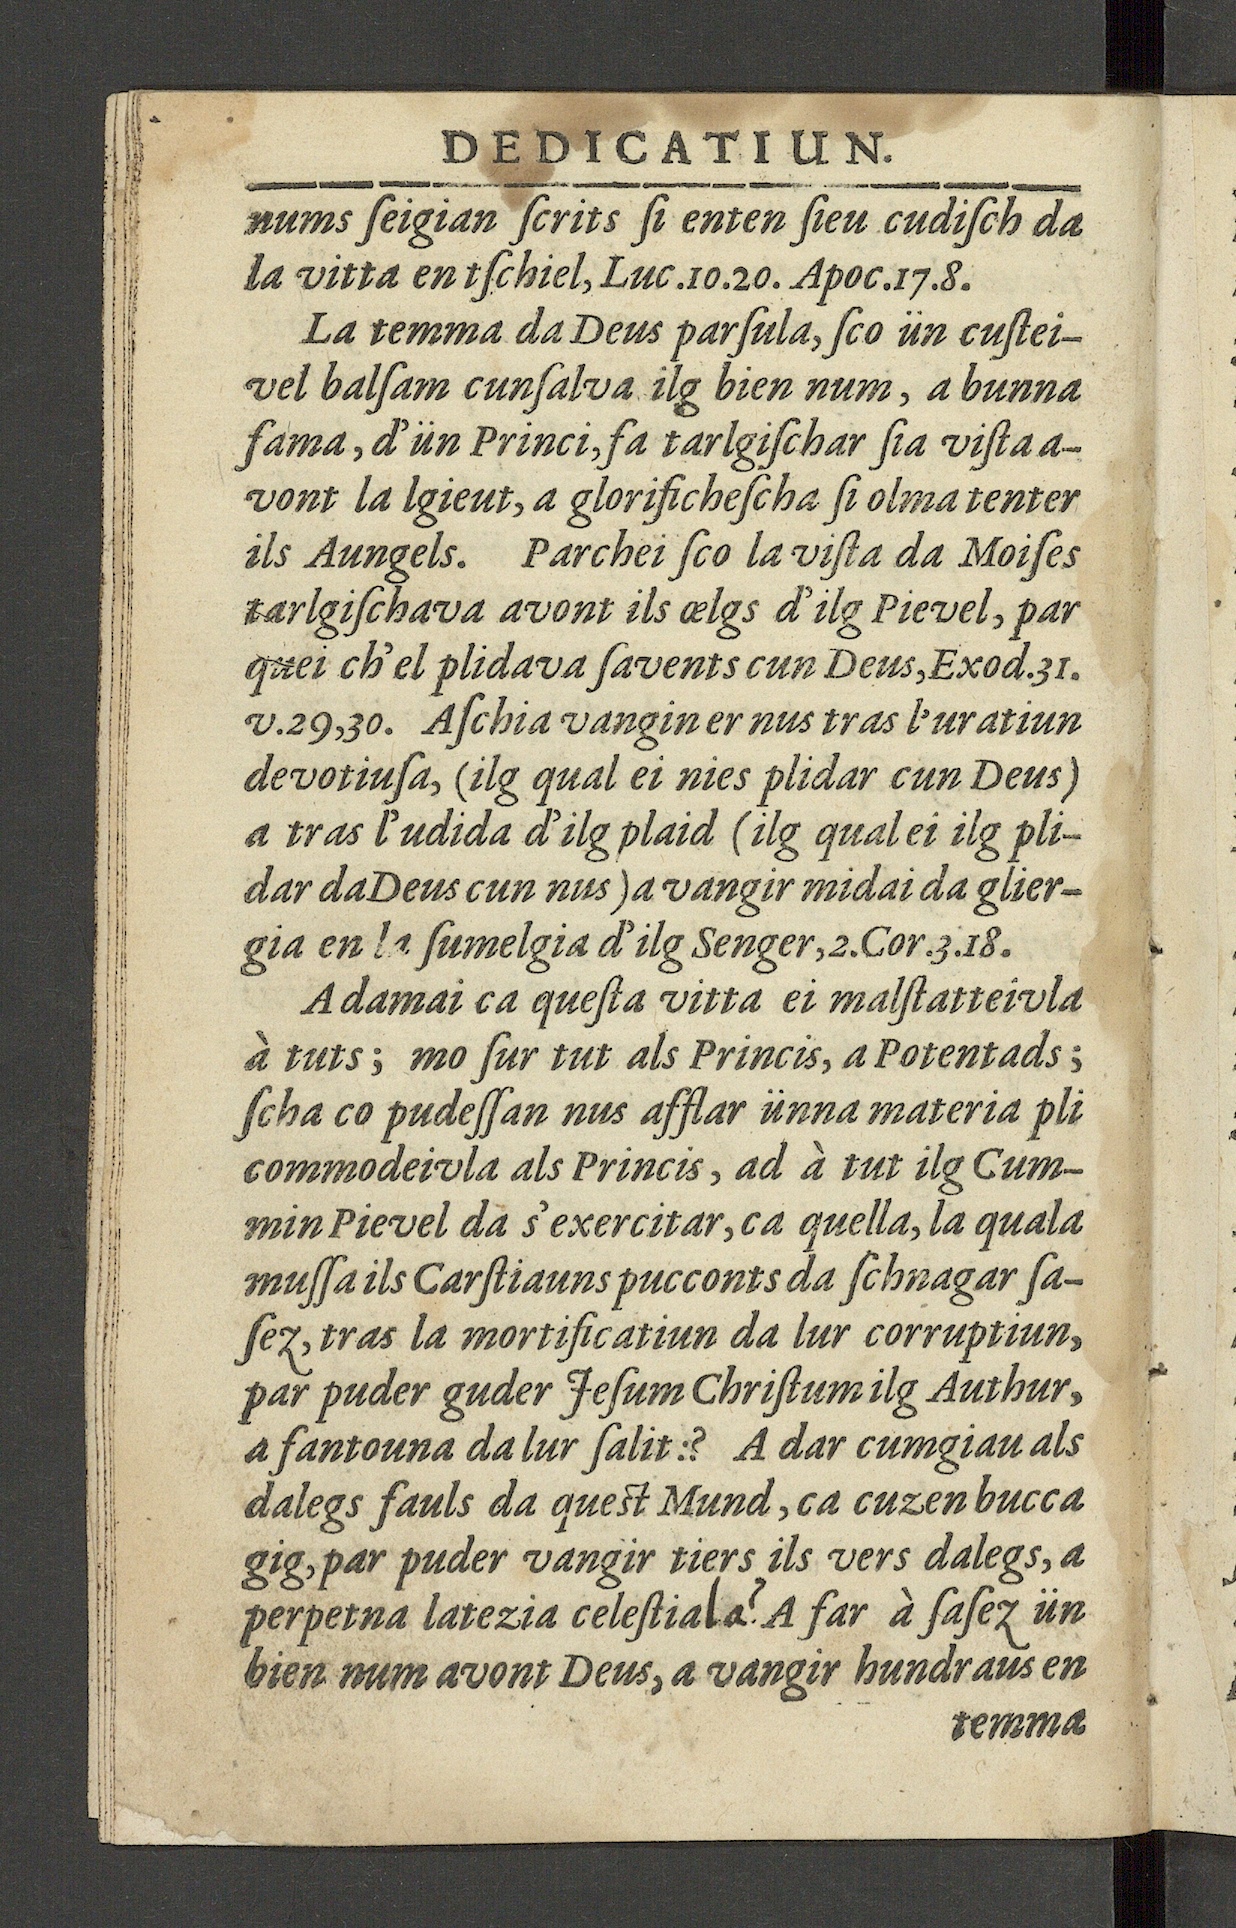 DEDICATIUN.
nums ſeigian ſcrits ſi enten ſieu cudiſch da
la vitta en tſchiel, Luc.10.20. Apoc.17.8.
La temma da Deus parſula, ſco ün cuſtei-
vel balſam cunſalva ilg bien num, a bunna
fama, d'ün Princi, fa tarlgiſchar ſia viſta a-
vont la lgieut, a glorificheſcha ſi olma tenter
ils Aungels. Parchei ſco la viſta da Moiſes
tarlgiſchava avont ils œlgs d'ilg Pievel, par
quei ch'el plidava ſavents cun Deus, Exod.31.
v.29,30. Aſchia vangin er nus tras l'uratiun
devotiuſa, (ilg qual ei nies plidar cun Deus)
a tras l'udida d'ilg plaid (ilg qual ei ilg pli-
dar da Deus cun nus) a vangir midai da glier-
gia en la ſumelgia d'ilg Senger, 2.Cor.3.18.
A damai ca queſta vitta ei malſtatteivla
à tuts; mo ſur tut als Princis, a Potentads;
ſcha co pudeſſan nus afflar ünna materia pli
commodeivla als Princis, ad à tut ilg Cum-
min Pievel da s'exercitar, ca quella, la quala
muſſa ils Carſtiauns pucconts da ſchnagar ſa-
ſez, tras la mortificatiun da lur corruptiun,
par puder guder Jeſum Chriſtum ilg Authur,
a fantouna da lur ſalit:? A dar cumgiau als
dalegs fauls da queſt Mund, ca cuzen bucca
gig, par puder vangir tiers ils vers dalegs, a
perpetna latezia celeſtiala? A far à ſaſez ün
bien num avont Deus, a vangir hundraus en
temma